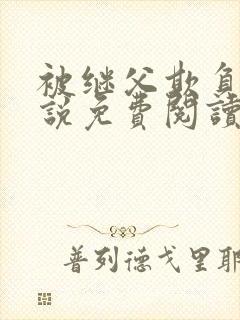 被继父欺负
説免費閱讀
普列德戈里耶